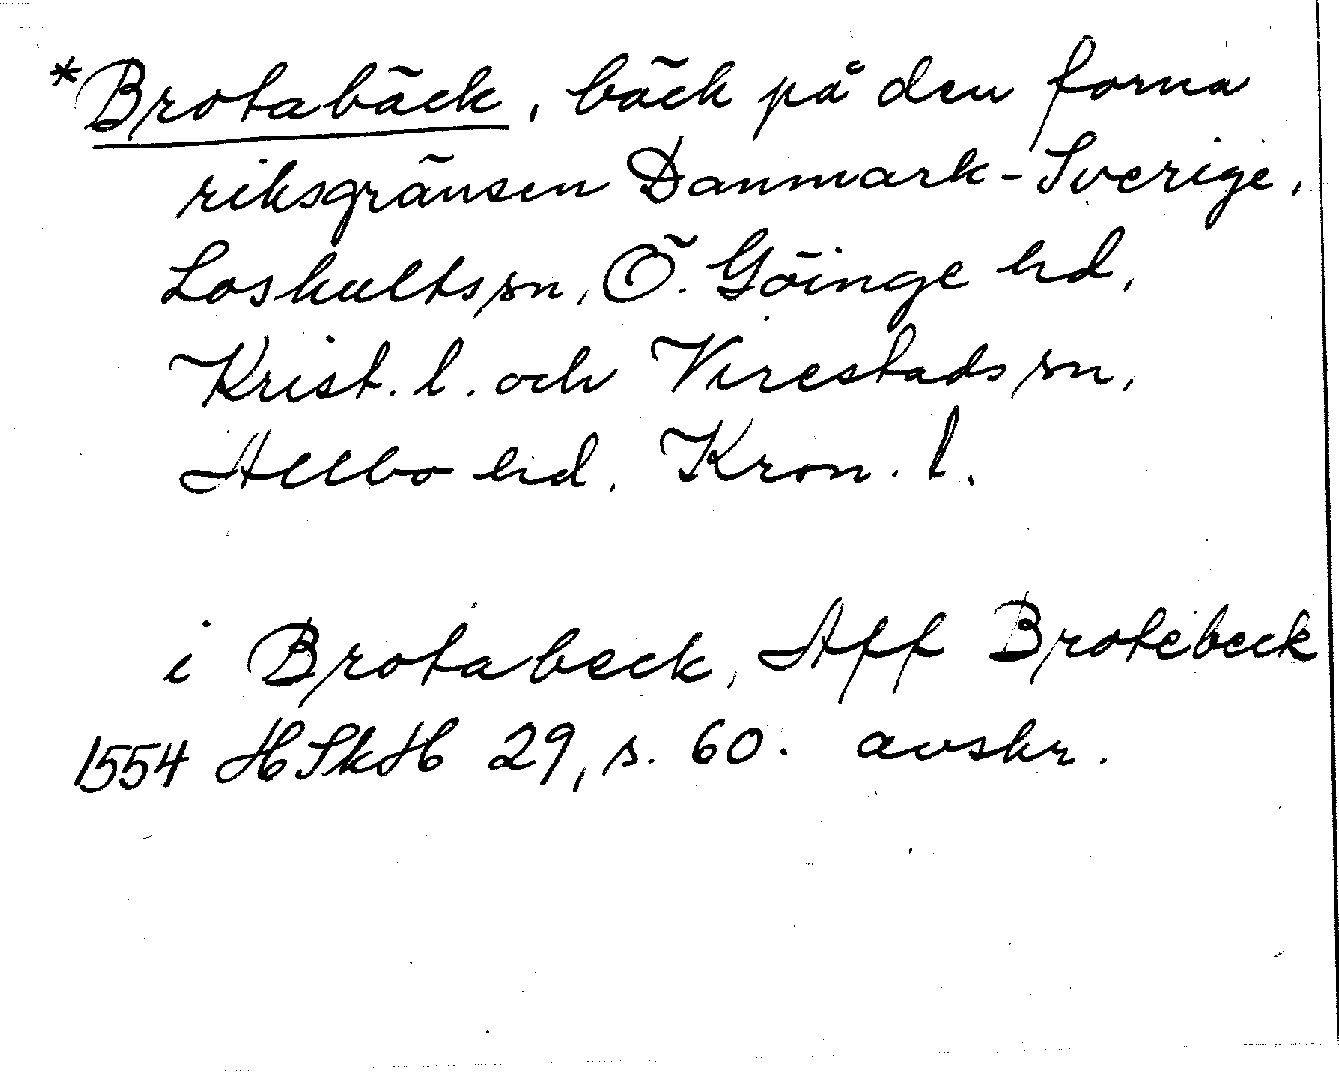 *Brotabäck, bäck på den forna
riksgränsen Danmark-Sverige,
Loshults sn, Ö. Göinge hd,
Krist. l. och Virestads sn,
Allbo hd, Kron. l.
i Brotabeck, Aff Brotebeck
1554 HSkH 29, s. 60. avskr.